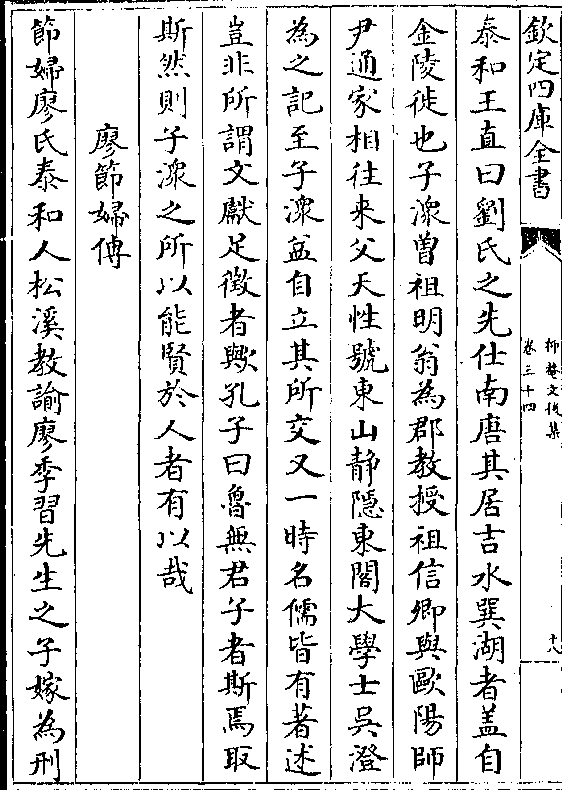 欽定四庫全書
抑菴文後集
卷三十四
十八
泰和王直曰劉氏之先仕南唐其居吉水巽湖者盖自
金陵徙也子㵎曽祖明翁為郡教授祖信卿與歐陽師
尹通家相往来父天性號東山静隠東閣大學士吳澄
為之記至子㵎益自立其所交又一時名儒皆有著述
豈非所謂文獻足徴者歟孔子曰魯無君子者斯焉取
斯然則子㵎之所以能賢於人者有以哉
廖節婦傳
節婦廖氏泰和人松溪教諭廖季習先生之子嫁為刑